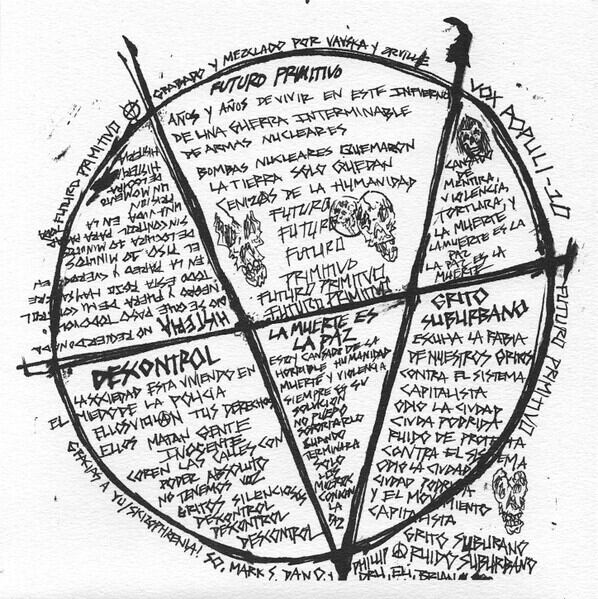 GRABADO Y MEZCLADO POR VAASKA Y ORVILLE
VOX POPULI-10
FUTURO PRIMITIVO
FUTURO PRIMITIVO
GRACIAS A YU SKIZOPHRENIA! SO, MARK S. DAN O. Y PHILLIP
DRU, ELI, BRIAN
FUTURO PRIMITIVO
AÑOS Y AÑOS DE VIVIR EN ESTE INFIERNO
DE UNA GUERRA INTERMINABLE
DE ARMAS NUCLEARES
BOMBAS NUCLEARES QUEMARON
LA TIERRA SOLO QUEDAN
CENIZAS DE LA HUMANIDAD
FUTURO
FUTURO
FUTURO
PRIMITIVO
FUTURO PRIMITVO
FUTURO PRIMITIVO
HISTERIA
NO RECUERDO NADA
NO SE QUE PASO TODO
NEGRO Y FUERA DE MI CONTROL
ESTA TODO ROJO HAY SANGRE
EN LA PARED Y CUERPOS EN
EL PISO. 30 MINUTOS
DE LOCURA 30 MINUTOS
SIN CONTROL PARA PASAR
UNA VIDA EN LA
PRISION
UN MOMENTO
DE LOCURA
HISTERIA
HISTERIA
CANSADO
DE
MENTIRA,
VIOLENCIA,
TORTURA, Y
LA MUERTE
LA MUERTE ES LA
PAZ
LA PAZ ES LA
MUERTE
DESCONTROL
LA SOCIEDAD ESTA VIVIENDO EN
EL MIEDO DE LA POLICIA
ELLOS VIOLAN TUS DERECHOS
ELLOS MATAN GENTE
INOCENTE
COREN LAS CALLES CON
PODER ABSOLUTO
NO TENEMOS VOZ
GRITOS SILENCIOSOS
DESCONTROL
DESCONTROL
DESCONTROL
LA MUERTE ES
LA PAZ
ESTOY CANSADO DE LA
HORRIBLE HUMANIDAD
MUERTE Y VIOLENCIA
SIEMPRE ES SU
SOLUCION
NO PUEDO
SOPORTARLO
CUANDO
TERMINARA
SOLO
LOS
MUERTOS
CONOCEN
LA
PAZ
GRITO
SUBURBANO
ESCUHA LA RABIA
DE NUESTROS GRITOS
CONTRA EL SISTEMA
CAPITALISTA
ODIO LA CIUDAD
CIUDA PODRIDA
RUIDO DE PROTESTA
CONTRA EL SISTEMA
ODIO LA CIUDAD
CIUDAD PODRIDA
Y EL MOVIMIENTO
CAPITALISTA
GRITO SUBURANO
RUIDO SUBURBANO